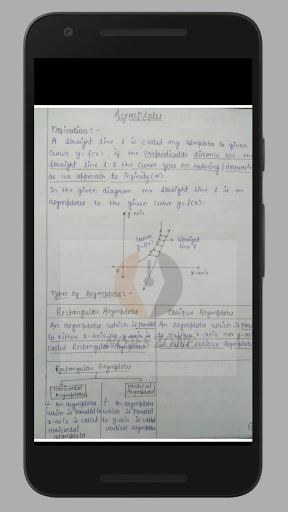 Asymptote
Defination :-
A straight line l is called any asymptote to given
curve y = f(x), if the Perpendicular distance b/w the
straight line l & the curve goes on reducing / decreasing
as we approach to infinity (∞)
In the given diagram, the straight line l is an
asymptotes to the given curve y = f(x)
y-axis
Curve
y=f(x)
straight
line l
0
x-axis
Types of Asymptote :-
Rectangular Asymptote
Oblique Asymptote
An asymptote which is parallel
to either x-axis or y-axis is
called Rectangular Asymptote
An asymptote which is
to neither x-axis nor y-axis
is called oblique Asymptote
Rectangular Asymptote
Horizontal
Asymptote
Vertical
Asymptote
An asymptote
which is Parallel
x-axis is called
Horizontal
asymptote
An asymptote
which is Parallel
to y-axis is called
vertical asymptote